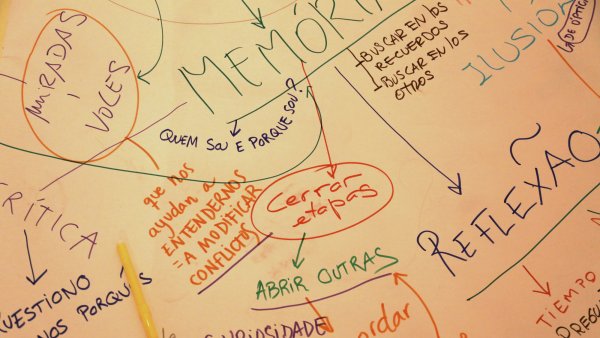 MIRADAS
I
VOCES
MEMÓRIA
BUSCAR EN LOS
RECUERDOS
BUSCAR EN LOS
OTROS
ILUSIÓ
DE ÓPTIC
QUEM SOU E PORQUE SOU?
que nos
ayudan a
ENTENDERNOS
= A MODIFICAR
CONFLICTOS
Cerrar
etapas
ABRIR OUTRAS
REFLEXÃO
CRÍTICA
QUESTIONO
NOS PORQUÊS
CURIOSIDADE
ordar
TIEMPO